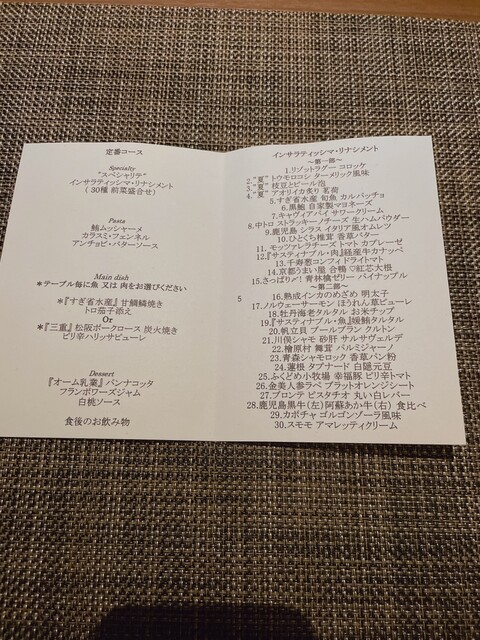 定番コース
Specialty
"スペシャリテ"
インサラティッシマ・リナシメント
(30種 前菜盛合せ)
Pasta
鮪ムッシャーメ
カラスミ・フェンネル
アンチョビ・バターソース
Main dish
*テーブル毎に魚 又は 肉をお選びください
*『すぎ省水産』甘鯛鱗焼き
トロ茄子添え
Or
*『三重』松阪ポークロース 炭火焼き
ピリ辛ハリッサピューレ
Dessert
『オーム乳業』パンナコッタ
フランボワーズジャム
白桃ソース
食後のお飲み物
インサラティッシマ・リナシメント
～第一部～
1.リゾットラグー コロッケ
2."夏" トウモロコシ ターメリック風味
3."夏" 枝豆とビール泡
4."夏" アオリイカ炙り 茗荷
5.すぎ省水産 旬魚 カルパッチョ
6.黒鮑 自家製マヨネーズ
7.キャヴィアパイ サワークリーム
8.中トロ ストラッキーノチーズ 生ハムパウダー
9.鹿児島 シラス イタリア風オムレツ
10.ひとくち椎茸 香草バター
11. モッツァレラチーズ トマト カプレーゼ
12.『サスティナブル・肉』経産牛カナッペ
13.千寿葱コンフィドライトマト
14.京都うまい屋 合鴨♡紅芯大根
15.さっぱり〆! 青林檎ゼリー パイナップル
～第二部～
5
16.熟成インカのめざめ 明太子
17.ノルウェーサーモン ほうれん草ピューレ
18.牡丹海老タルタル お米チップ
19.『サスティナブル・魚』媛鮪タルタル
20.帆立貝 ブールブラン クルトン
21.川俣シャモ 砂肝 サルサヴェルデ
22.檜原村 舞茸 パルミジャーノ
23.青森シャモロック 香草パン粉
24.蓮根 タプナード 白隠元豆
25.ふくどめ小牧場 幸福豚 ピリ辛トマト
26.金美人参ラペ ブラットオレンジシート
27.ブロンテ ピスタチオ 丸い白レバー
28.鹿児島黒牛(左)阿蘇あか牛(右) 食比べ
29.カボチャ ゴルゴンゾーラ風味
30.スモモ アマレッティクリーム